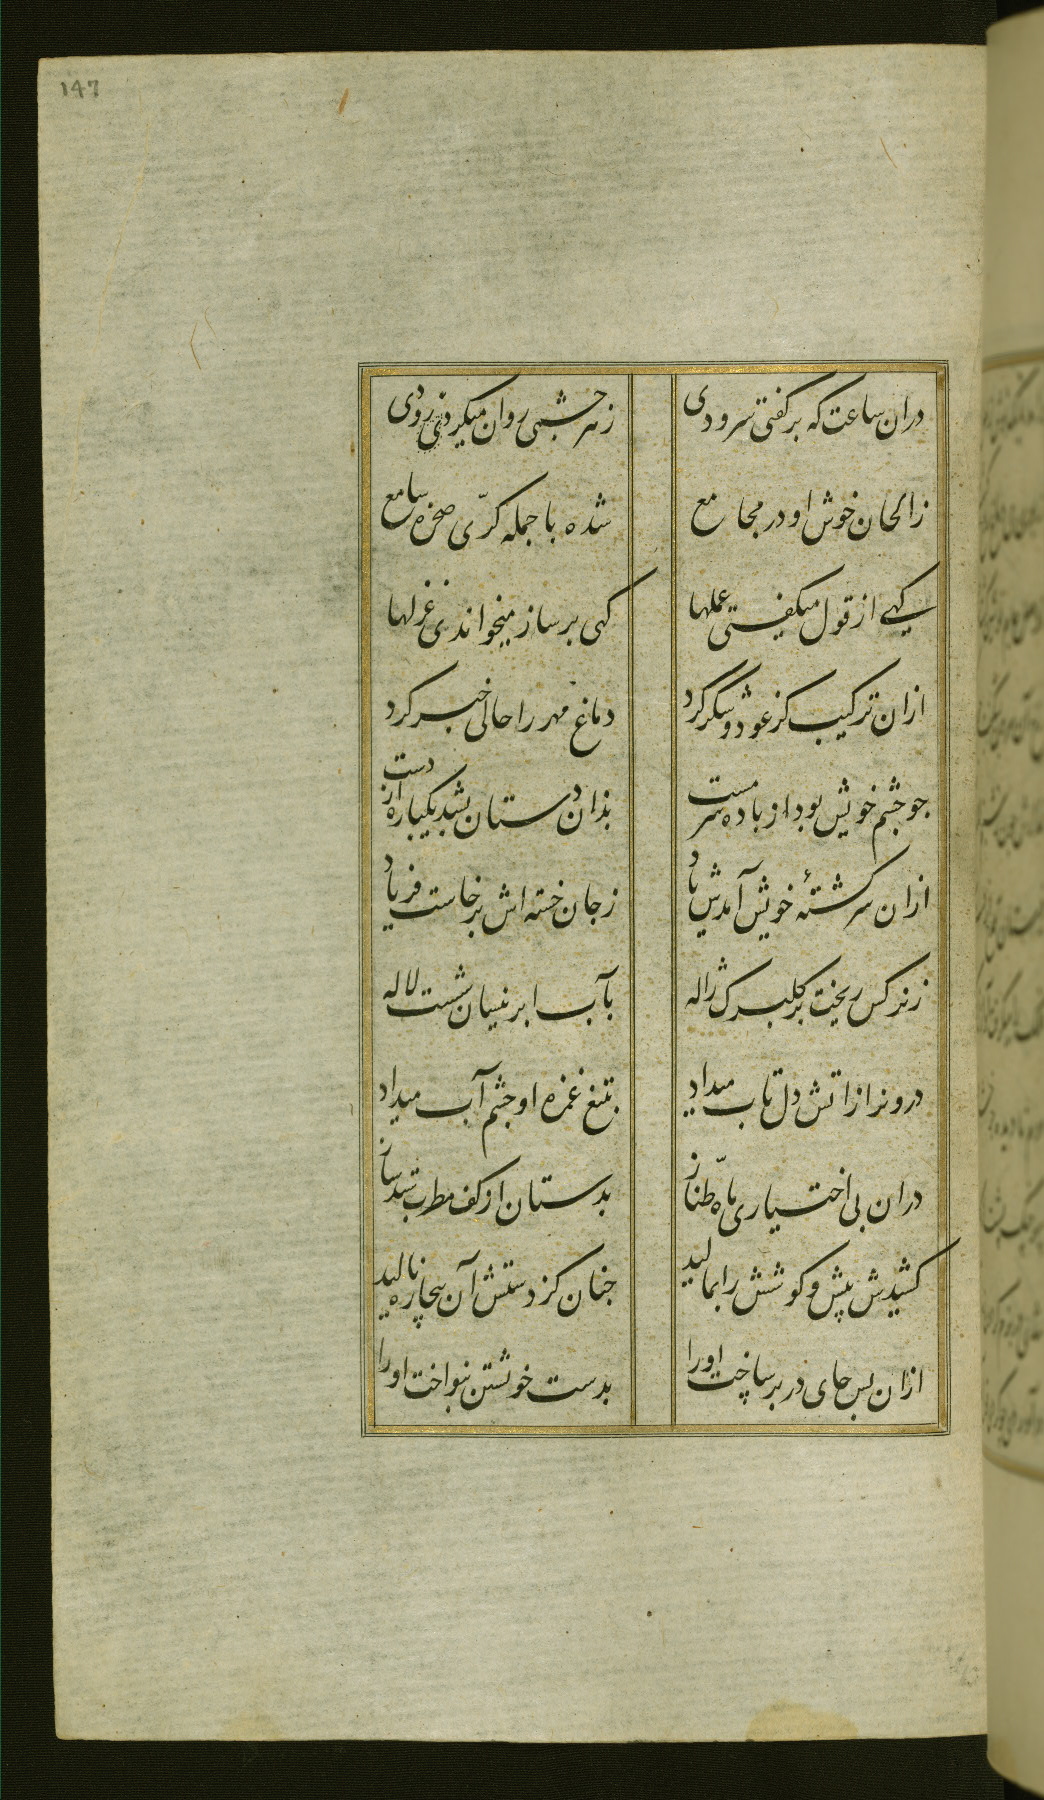 147
دران ساعت که برگفتی سرودی
ز هر چشمی روان میکردزی رودی
زالحان خوش او در مجامع
شده با جمله کرّی صخره سامع
کهی از قول میکفتی عملها
کهی بر ساز میخواندی غزلها
ازان ترکیب کز عود و شکر کرد
دماغ مهر را حالی خبر کرد
جو جشم خویش بود از باده سرمست
بذان دستان بشد یکباره از دست
ازان سرکشتهٔ خویش آمدش یاد
ز جان خسته اش برخاست فریاد
ز نرکس ریخت بر کلبرک ژاله
بآب ابر نیسان شست لاله
درونرا زاتش دل تاب میداد
بتیغ غمزه او جشم آب میداد
دران بی اختیاری ماه طنّاز
بدستان از کف مطرب بستد ساز
کشیدش پیش و کوشش را بمالید
جنان کز دستش آن بیچاره نالید
ازان پس جای در بر ساخت اورا
بدست خویشتن بنواخت اورا